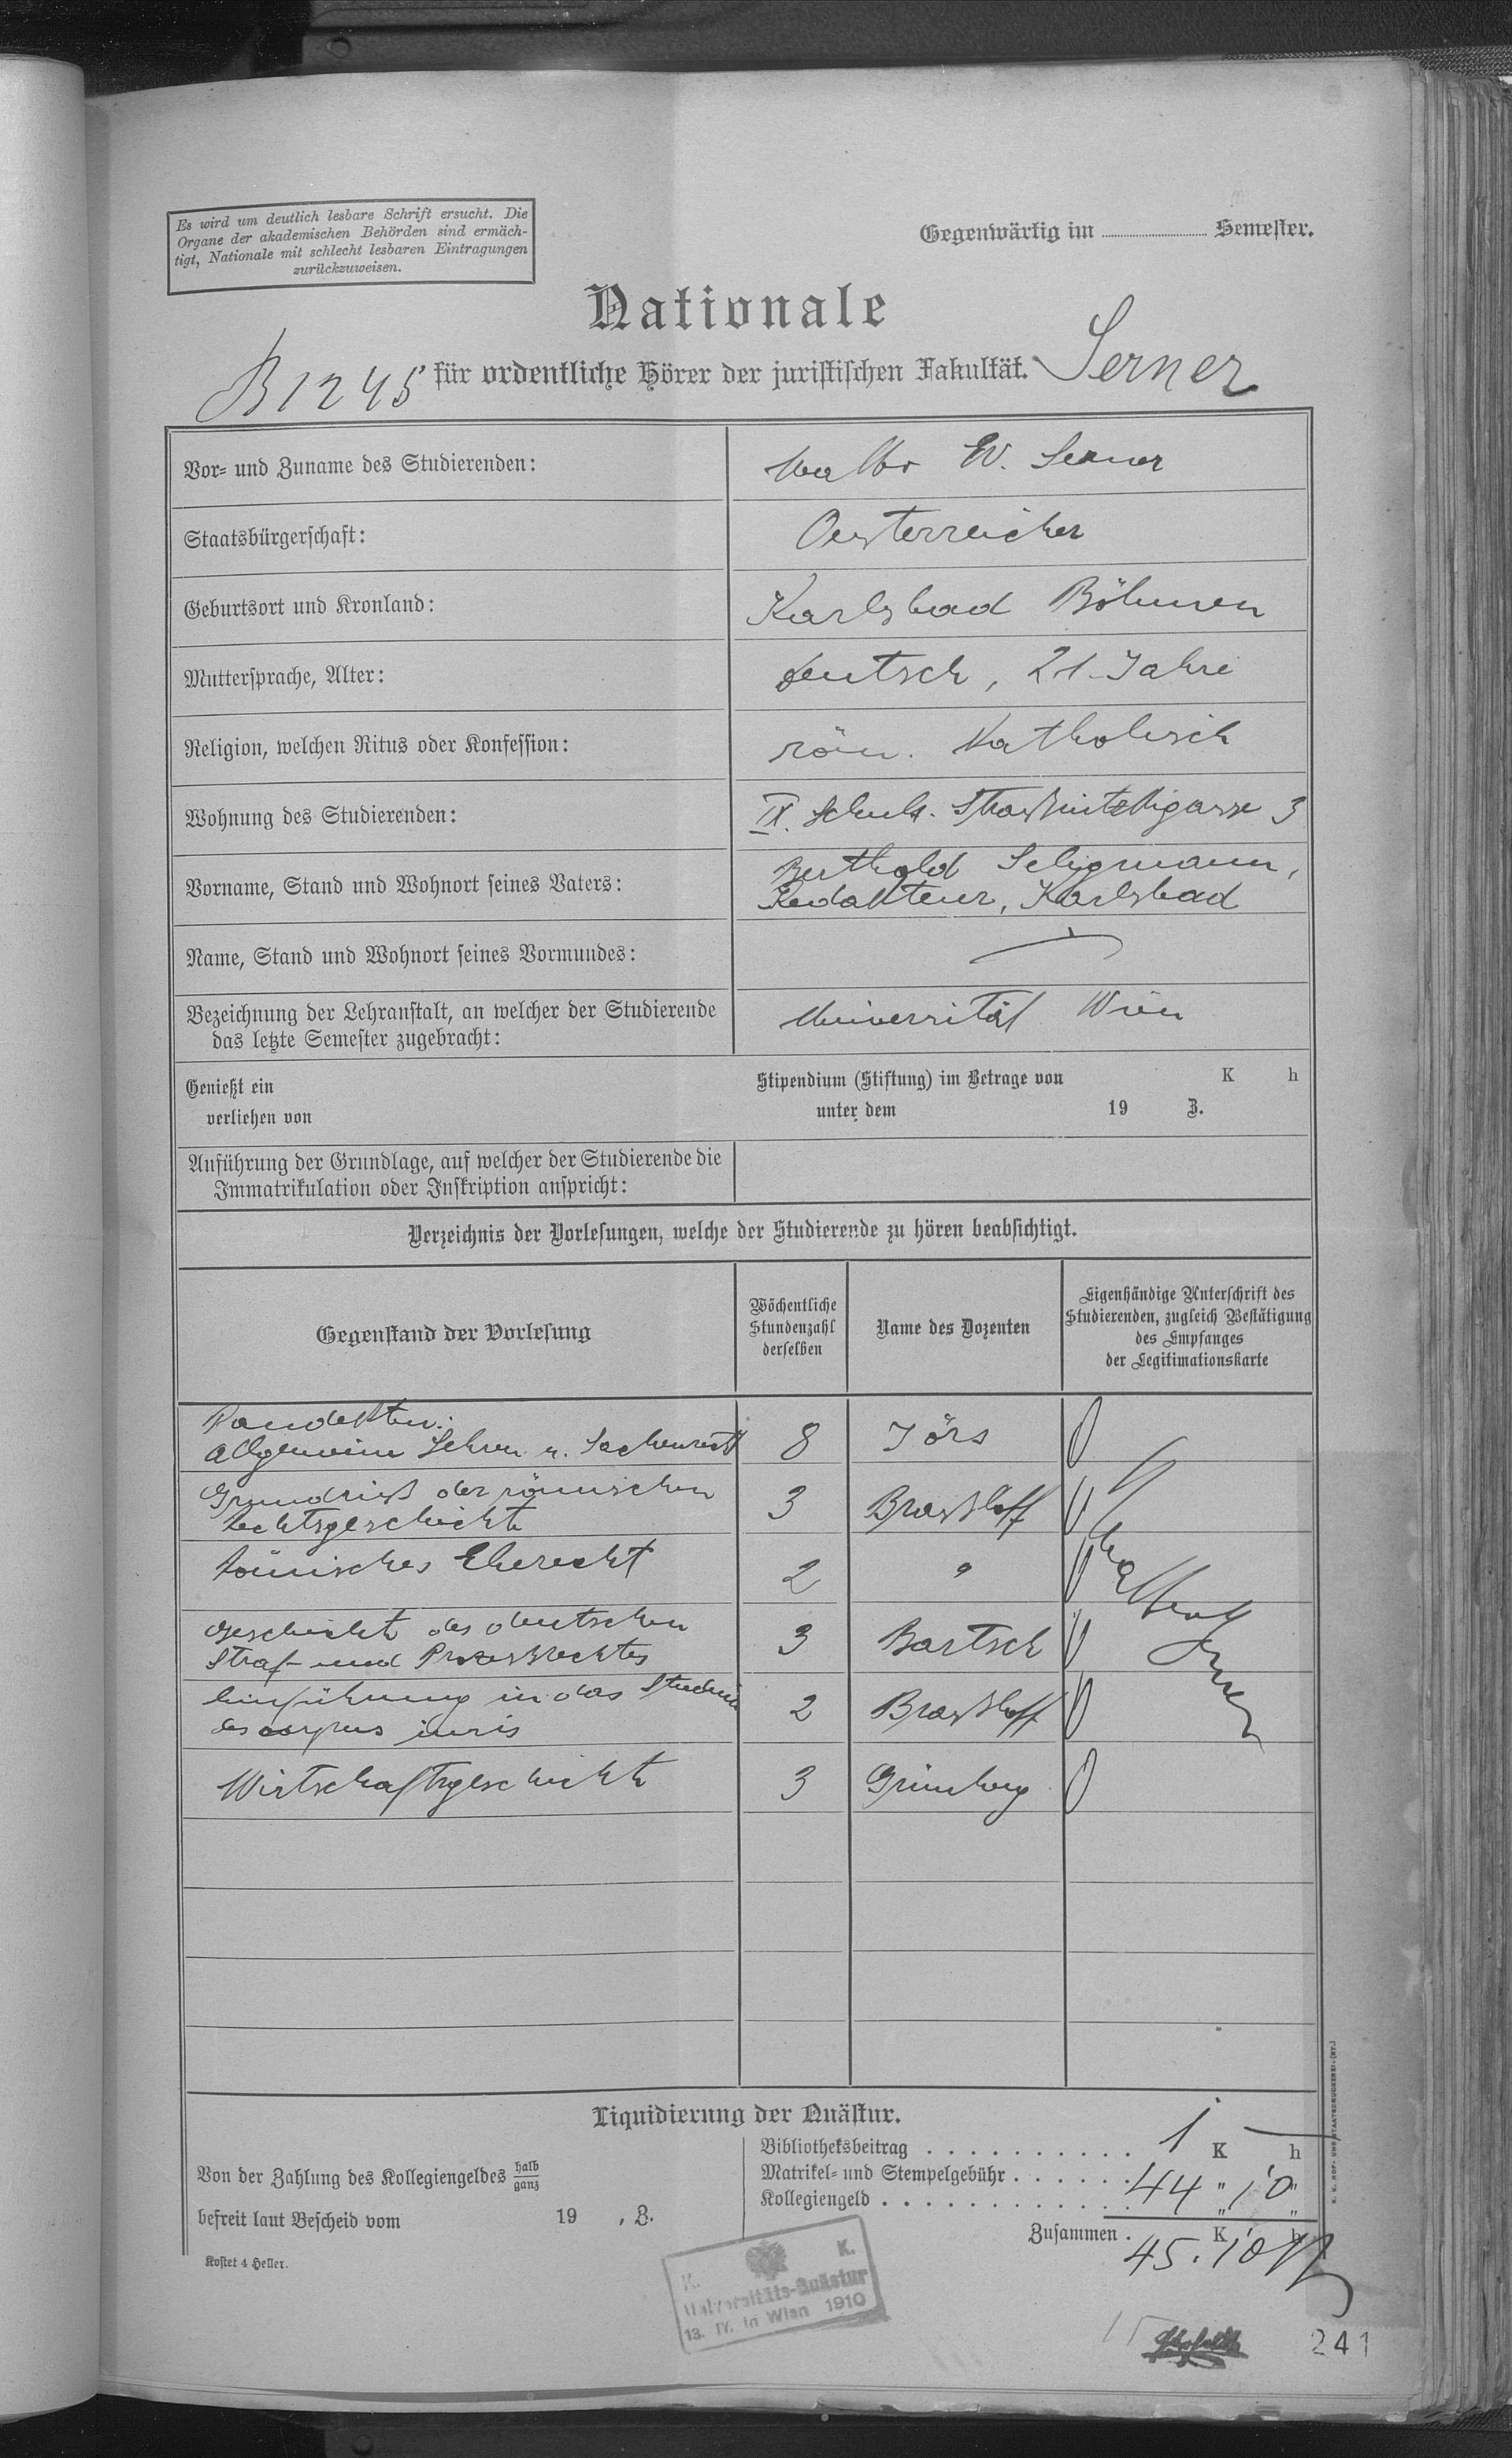 Es wird um deutlich lesbare Schrift ersucht. Die
Organe der akademischen Behörden sind ermäch-
tigt, Nationale mit schlecht lesbaren Eintragungen
zurückzuweisen.
Gegenwärtig im Semester.
Nationale
B1245 für ordentliche Hörer der juristischen Fakultät. Serner
Vor- und Zuname des Studierenden: Walter E. Serner
Staatsbürgerschaft: Oesterreicher
Geburtsort und Kronland: Karlsbad Böhmen
Muttersprache, Alter: deutsch, 21 Jahre
Religion, welchen Ritus oder Konfession: röm. Katholisch
Wohnung des Studierenden: IX. 3
Vorname, Stand und Wohnort seines Vaters: Berthold Seligmann,
Redakteur, Karlsbad
Name, Stand und Wohnort seines Vormundes:
Bezeichnung der Lehranstalt, an welcher der Studierende
das letzte Semester zugebracht: Universität Wien
Genießt ein Stipendium (Stiftung) im Betrage von K h
verliehen von unter dem 19 Z.
Anführung der Grundlage, auf welcher der Studierende die
Immatrikulation oder Inskription anspricht:
Verzeichnis der Vorlesungen, welche der Studierende zu hören beabsichtigt.
Gegenstand der Vorlesung
Wöchentliche
Stundenzahl
derselben
Name des Dozenten
Eigenhändige Unterschrift des
Studierenden, zugleich Bestätigung
des Empfanges
der Legitimationskarte
Pandekten:
Allgemeine Lehren u. Sachenrecht 8 Jörs
Grundriß der römischen
Rechtsgeschichte 3 Braßloff
Römisches Eherecht 2 "
Geschichte des deutschen
Straf- und Prozeßrechtes 3 Bartsch
Einführung in das Studium
des corpus iuris 2 Braßloff
Wirtschaftsgeschichte 3 Grünberg
Walter Serner
Liquidierung der Quästur.
Von der Zahlung des Kollegiengeldes halb
ganz
befreit laut Bescheid vom 19 , Z.
Bibliotheksbeitrag . . . . . . . . . . 1 K — h
Matrikel- und Stempelgebühr . . . . . . " "
Kollegiengeld . . . . . . . . . . . . . 44 " 10 "
Zusammen . 45 . K 10 h
Kostet 4 Heller.
K. K.
Universitäts-Quästur
13. IV. in Wien 1910
241